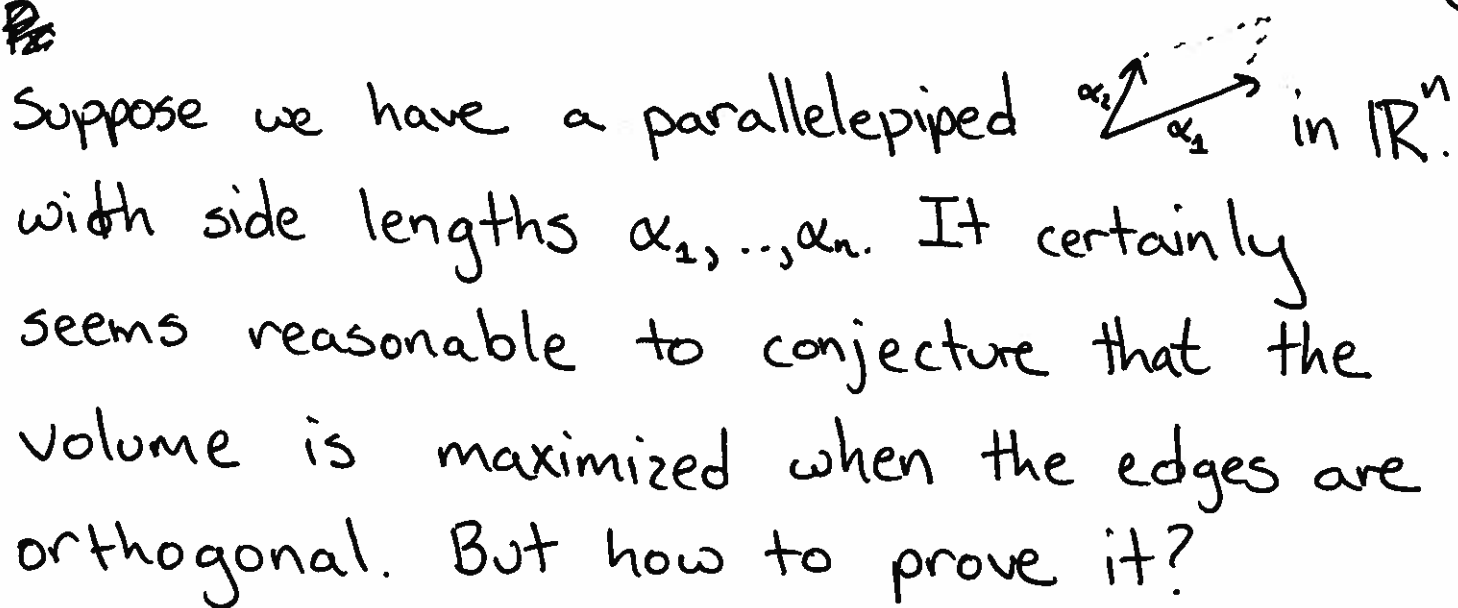 Suppose we have a parallelepiped α₂ α₁ in ℝⁿ.
with side lengths α₁, .., αₙ. It certainly
seems reasonable to conjecture that the
volume is maximized when the edges are
orthogonal. But how to prove it?